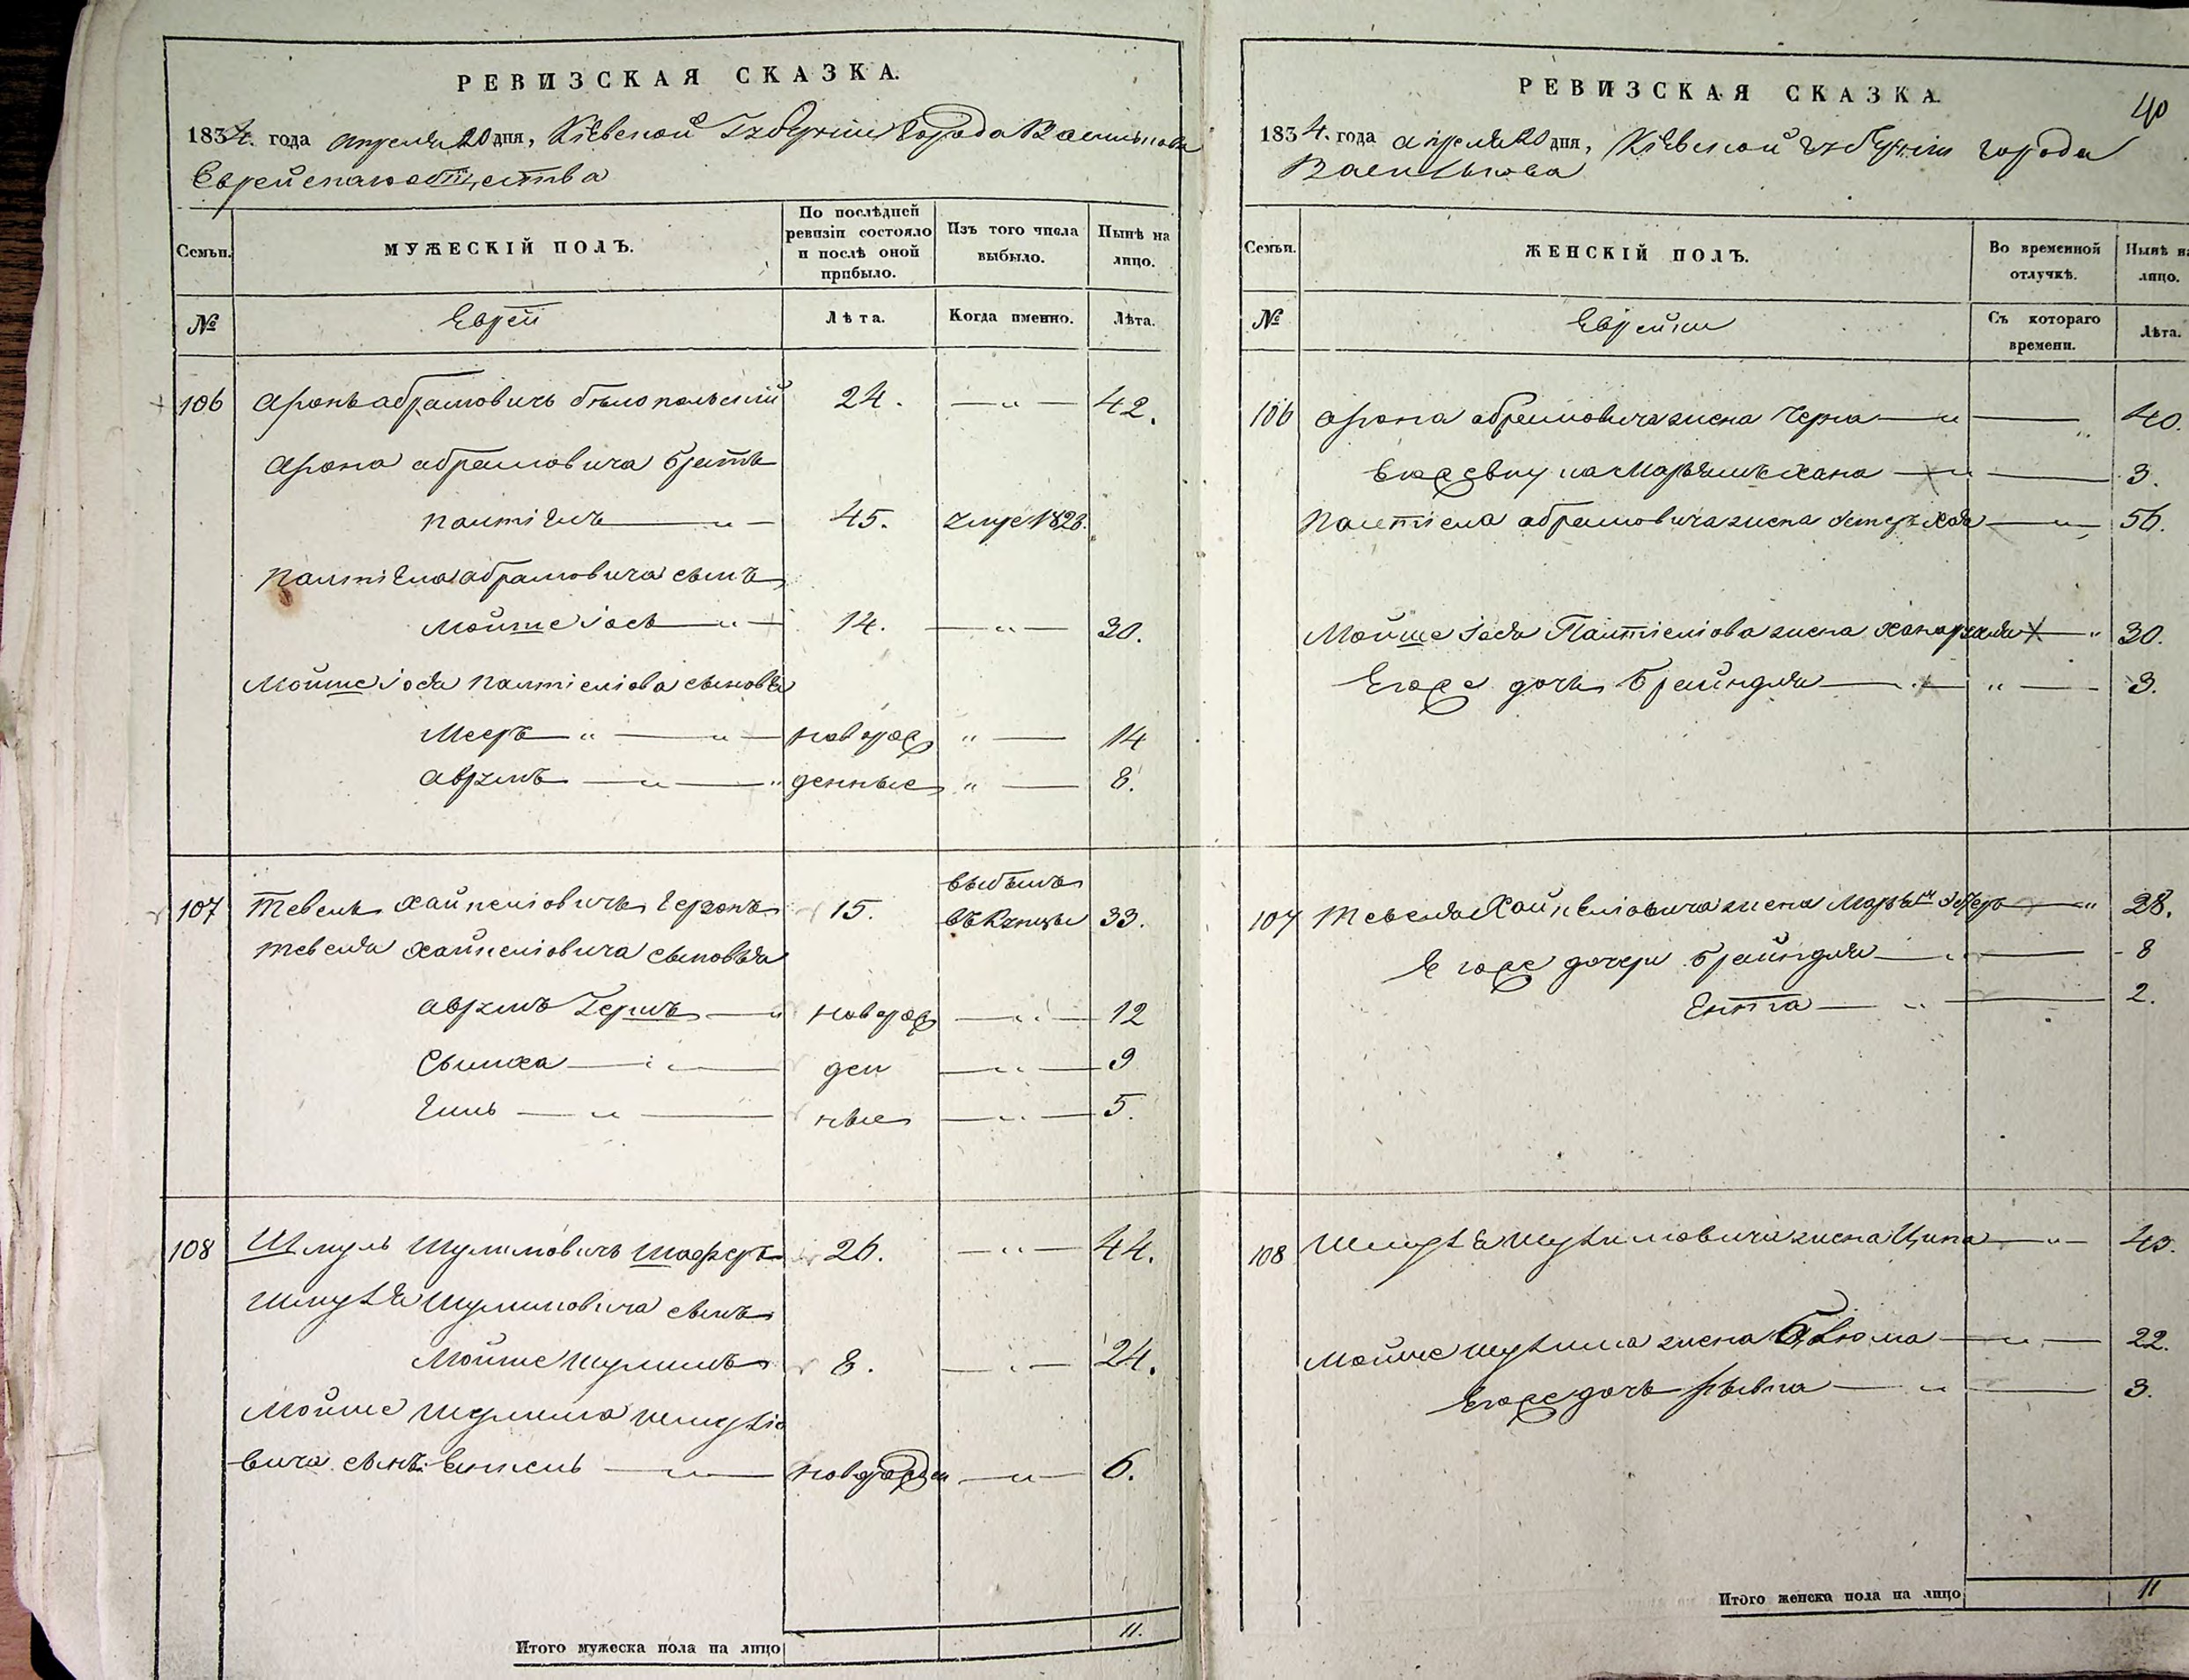 РЕВИЗСКАЯ СКАЗКА.
1834. года апреля 20 дня, Кіевской Губерніи города Василькова
Еврейскаго общества
Семьи.
МУЖЕСКІЙ ПОЛЪ.
По послѣдней ревизіи состояло и послѣ оной прибыло.
Изъ того числа выбыло.
Нынѣ на лицо.
№
Евреи
Лѣта.
Когда именно.
Лѣта.
106 Аронъ Абрамовичъ Бѣлопольскій 24. — " — 42.
Арона Абрамовича братъ
Паитіель — " — 45. умре 1823.
Паитіеля Абрамовича сынъ
Мойше Іось — " — 14. — " — 30.
Мойше Іося Паитіелiова сыновья
Мееръ — " — " — новорож " — 14
Аврумъ — " — " денные " — 8.
107 Тевель Хайкелiовичъ Герзонъ 15. выбылъ въ Купцы 33.
Тевеля Хайкелiовича сыновья
Аврумъ Гершъ — " новорож — " — 12
Сымха — " — ден — " — 9
Гиль — " — ные — " — 5.
108 Шмуль Шулимовичъ Шаферъ 26. — " — 44.
Шмуля Шулимовича сынъ
Мойше Шулимъ 8. — " — 24.
Мойше Шулима Шмулiо
вича сынъ — " — новорожден — " — 6.
Итого мужеска пола на лицо 11.
РЕВИЗСКАЯ СКАЗКА
40
1834. года апреля 20 дня, Кіевской губерніи города
Василькова
Семьи.
ЖЕНСКІЙ ПОЛЪ.
Во временной отлучкѣ.
Нынѣ на лицо.
№
Еврейки
Съ котораго времени.
Лѣта.
106 Арона Абрамовича жена Черна — " — 40.
Его ж внука Марьямъ Хана — " — 3.
Паитiеля Абрамовича жена Эстеръ Хая — " — 56.
Мойше Іося Паитіелiова жена Хана — " 30.
Его ж дочь Брайндля — " — 3.
107 Тевеля Хайкелiовича жена Марьям — " 28.
Его ж дочери Брайндля — " — 8
Ента — " — 2.
108 Шмуля Шулимовича жена Ципа — " — 43.
Мойше Шулима жена Блюма — " — 22.
Его ж дочь Рывка — " — 3.
Итого женска пола на лицо 11